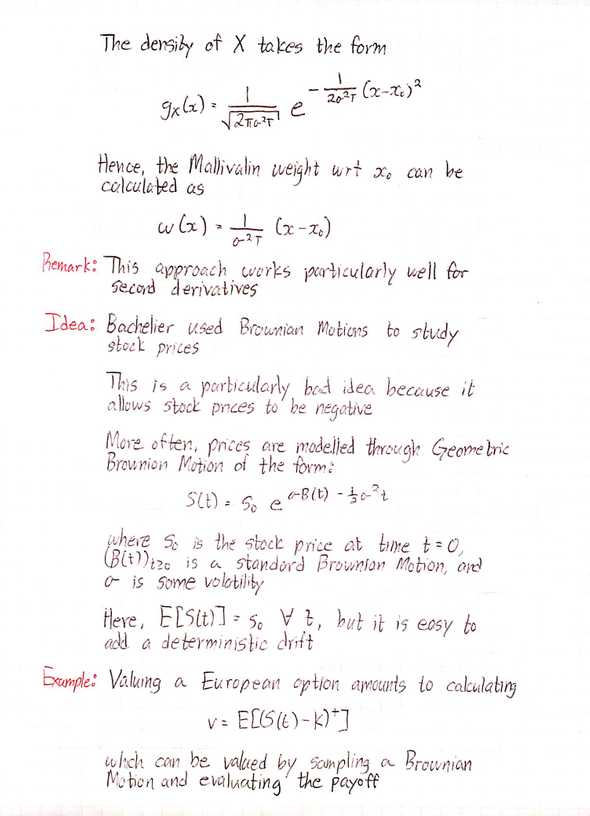 The density of X takes the form
gₓ(x) = 1/√(2πσ²T) e^(-1/(2σ²T) (x-x₀)²)
Hence, the Mallivalin weight wrt x₀ can be
calculated as
ω(x) = 1/(σ²T) (x-x₀)
Remark: This approach works particularly well for
second derivatives
Idea: Bachelier used Brownian Motions to study
stock prices
This is a particularly bad idea because it
allows stock prices to be negative
More often, prices are modelled through Geometric
Brownian Motion of the form:
S(t) = S₀ e^(σB(t) - ½σ²t)
where S₀ is the stock price at time t=0,
(B(t))t≥0 is a standard Brownian Motion, and
σ is some volatility
Here, E[S(t)] = S₀ ∀ t, but it is easy to
add a deterministic drift
Example: Valuing a European option amounts to calculating
v = E[(S(t)-K)⁺]
which can be valued by sampling a Brownian
Motion and evaluating the payoff